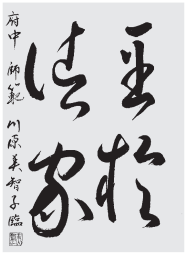 至於
諸家
府中 師範 川原美智子臨